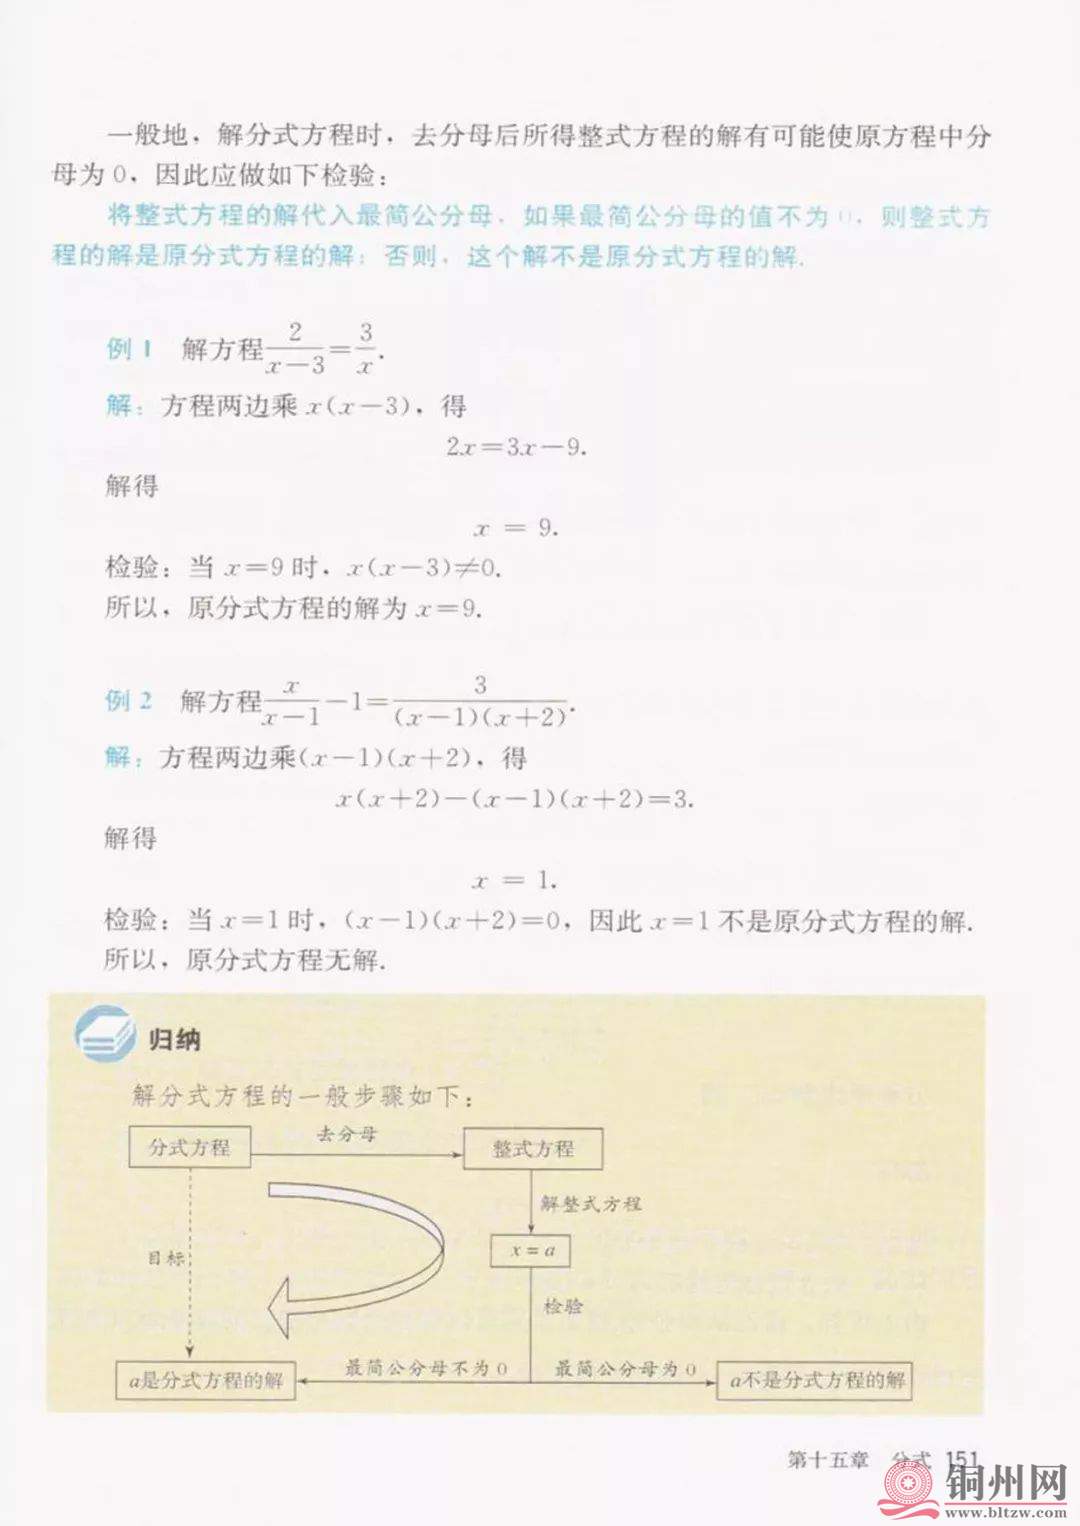 一般地，解分式方程时，去分母后所得整式方程的解有可能使原方程中分
母为 0，因此应做如下检验：
将整式方程的解代入最简公分母，如果最简公分母的值不为 0，则整式方
程的解是原分式方程的解；否则，这个解不是原分式方程的解.
例 1 解方程 2/(x－3)＝3/x.
解：方程两边乘 x(x－3)，得
2x＝3x－9.
解得
x ＝ 9.
检验：当 x＝9 时，x(x－3)≠0.
所以，原分式方程的解为 x＝9.
例 2 解方程 x/(x－1)－1＝3/((x－1)(x＋2)).
解：方程两边乘(x－1)(x＋2)，得
x(x＋2)－(x－1)(x＋2)＝3.
解得
x ＝ 1.
检验：当 x＝1 时，(x－1)(x＋2)＝0，因此 x＝1 不是原分式方程的解.
所以，原分式方程无解.
归纳
解分式方程的一般步骤如下：
分式方程 去分母 整式方程
解整式方程
x＝a
目标
检验
a是分式方程的解 最简公分母不为 0 最简公分母为 0 a不是分式方程的解
第十五章 分式 151
铜州网
www.bltzw.com